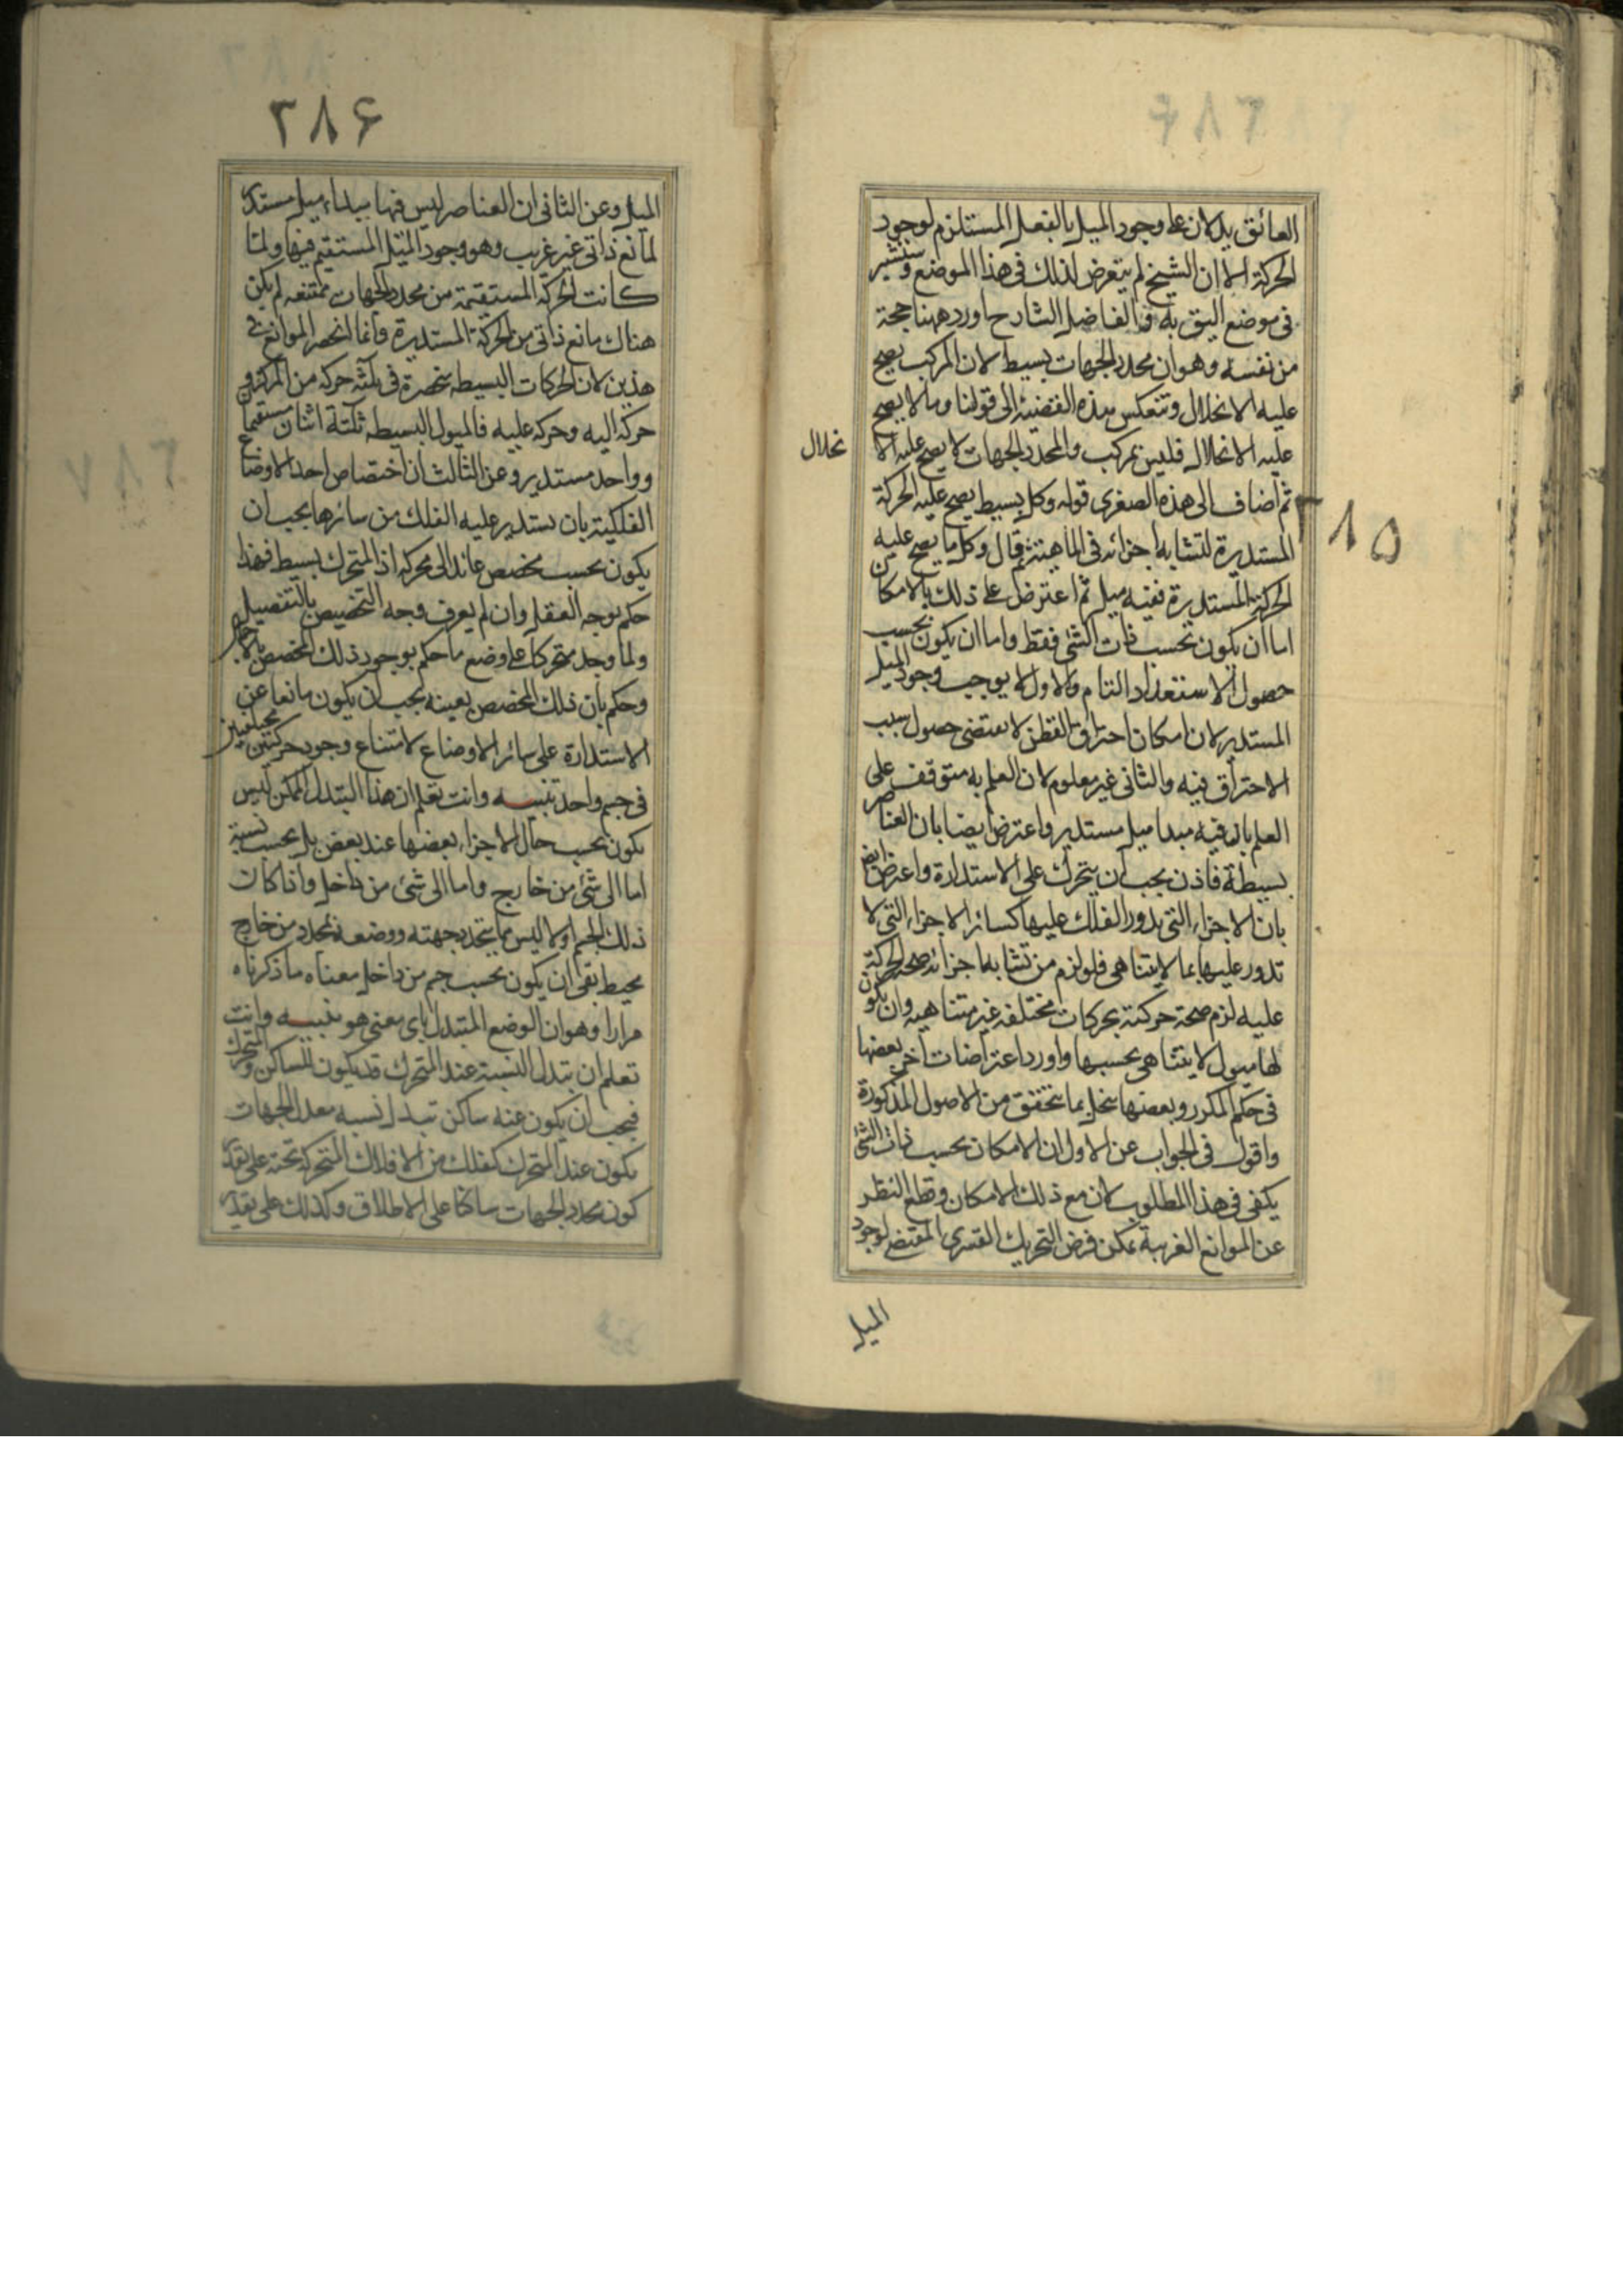 ٣٨٥
العائق يدلان على وجود الميل بالفعل المستلزم لوجود
الحركة الا ان الشيخ لم يتعرض لذلك فى هذا الموضع وسنشير
فى موضع اليق به والفاضل الشارح اورد ههنا حجة
من نفسه وهو ان محدد الجهات بسيط لان المركب يصح
عليه الانحلال وتنعكس هذه القضية الى قولنا وما لا يصح
عليه الانحلال فليس بمركب والمحدد للجهات لا يصح عليه الا
نحلال
ثم اضاف الى هذه الصغرى قوله وكل بسيط يصح عليه الحركة
المستديرة لتشابه اجزائه فى الماهية ثم قال وكل ما يصح عليه
الحركة المستديرة ففيه ميل ثم اعترض على ذلك بالامكان
اما ان يكون بحسب ذات الشئ فقط واما ان يكون بحسب
حصول الاستعداد التام والاول لا يوجب وجود الميل
المستدير لان امكان احتراق القطن لا يقتضى حصول سبب
الاحتراق فيه والثانى غير معلوم لان العلم به متوقف على
العلم بان فيه مبدا ميل مستدير واعترض ايضا بان العناصر
بسيطة فاذن يجب ان يتحرك على الاستدارة واعترض ايض
بان الاجزاء التى يدور الفلك عليها كسائر الاجزاء التى لا
تدور عليها بما لا يتناهى فلو لزم من تشابه اجزائه صحة الحركة
عليه لزم صحة حركته بحركات مختلفه غير متناهيه وان يكون
لها ميول لا يتناهى بحسبها واورد اعتراضات اخر بعضها
فى حكم المكرر وبعضها ينحل بما يتحقق من الاصول المذكورة
واقول فى الجواب عن الاول ان الامكان بحسب ذات الشئ
يكفى فى هذا المطلوب لان مع ذلك الامكان وقطع النظر
عن الموانع الغريبة يمكن فرض التحريك القسرى المقتضى لوجود
الميل
٣٨۶
الميل وعن الثانى ان العناصر ليس فيها مبداء ميل مستدير
لمانع ذاتى غير غريب وهو وجود الميل المستقيم فيها ولما
كانت الحركة المستقيمة من محدد الجهات ممتنعه لم يكن
هناك مانع ذاتى من الحركة المستديرة وانما انحصر الموانع فى
هذين لان الحركات البسيطه منحصرة فى ثلثه حركه من المركز و
حركه اليه وحركه عليه فالميول البسيطه ثلثة اثنان مستقيما
وواحد مستدير وعن الثالث ان اختصاص احد الاوضاع
الفلكية بان يستدير عليه الفلك من سائرها يجب ان
يكون بحسب مخصص عائد الى محركه اذ المتحرك بسيط فهذا
حكم يوجبه العقل وان لم يعرف وجه التخصيص بالتفصيل
ولما وجد متحركا على وضع ما حكم بوجود ذلك المخصص بالاجمال
وحكم بان ذلك المخصص بعينه يجب ان يكون مانعا عن
الاستدارة على سائر الاوضاع لامتناع وجود حركتين مختلفتين
فى جسم واحد تنبيه وانت تعلم ان هذا التبدل الممكن ليس
يكون بحسب حال الاجزاء بعضها عند بعض بل بحسب نسبة
اما الى شئ من خارج واما الى شئ من داخل واذا كان
ذلك الجسم اولا ليس مما يتحدد جهته ووضعه بمحدد من خارج
محيط بقى ان يكون بحسب جسم من داخل معناه ما ذكرناه
مرارا وهو ان الوضع المتبدل باى معنى هو تنبيه وانت
تعلم ان تبدل النسبة عند المتحرك قد يكون للساكن والمتحرك
فيجب ان يكون عنه ساكن تبدل نسبه محدد الجهات
يكون عند المتحرك كفلك من الافلاك المتحركة تحته على تقدير
كون محدد الجهات ساكنا على الاطلاق وكذلك على تقدير